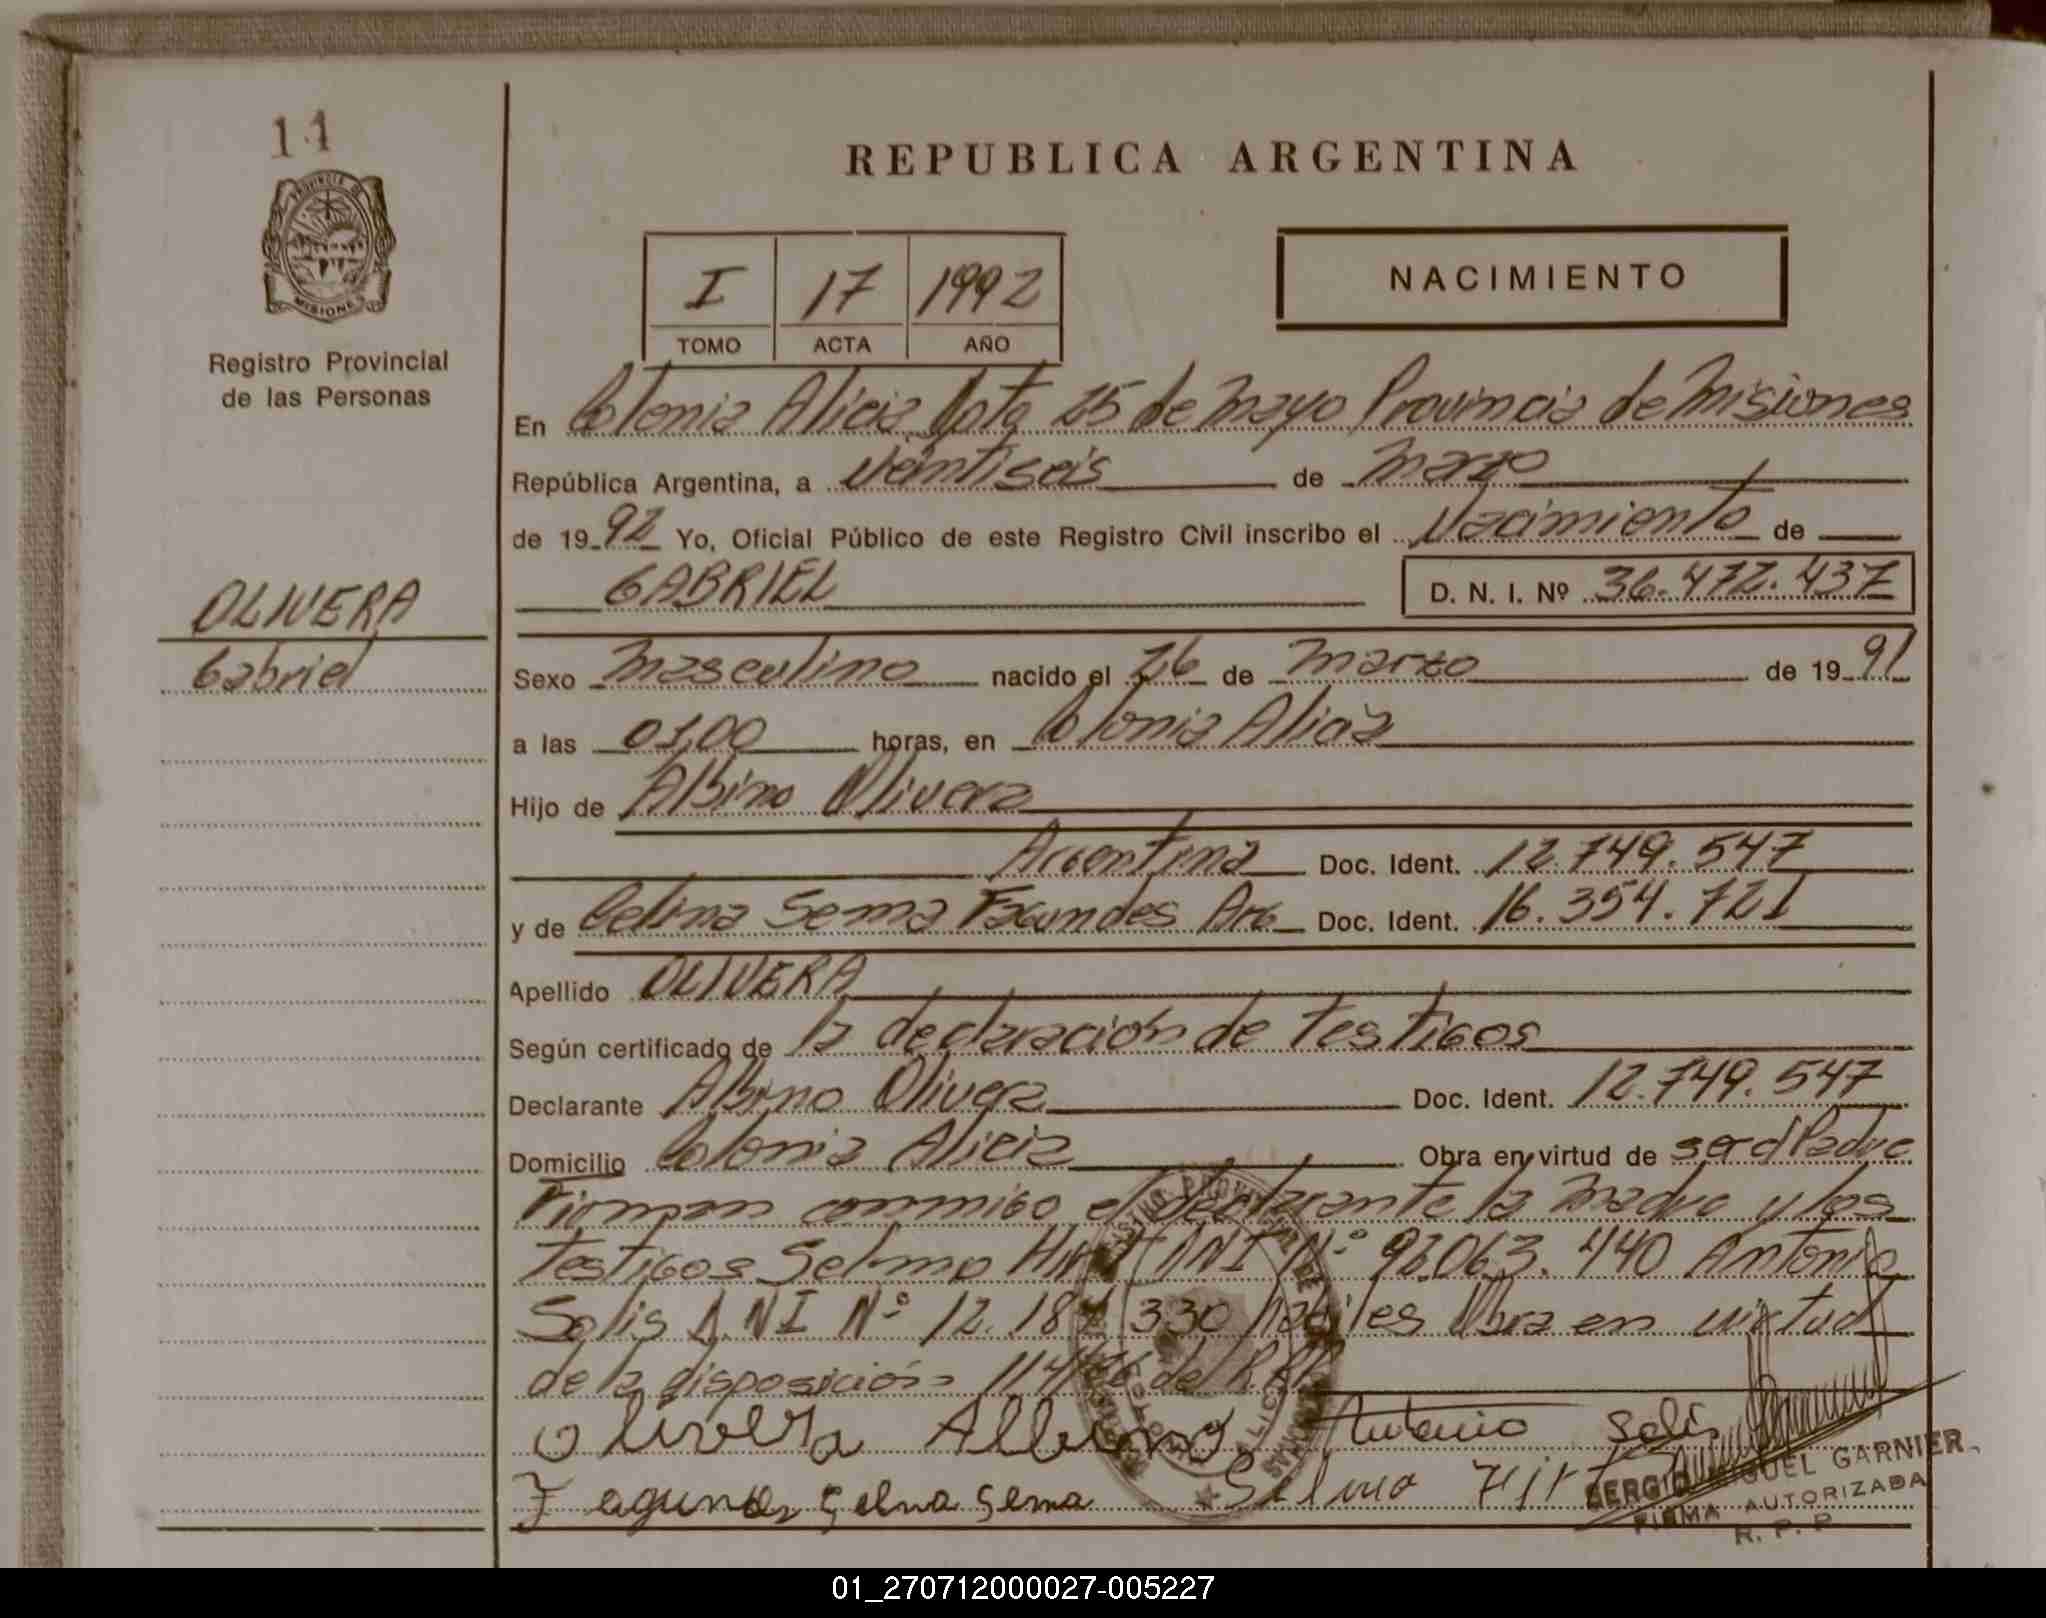 11
PROVINCIA DE
MISIONES
Registro Provincial
de las Personas
OLIVERA
Gabriel
REPUBLICA ARGENTINA
I 17 1992
TOMO ACTA AÑO
NACIMIENTO
En Colonia Alicia Dpto 25 de Mayo Provincia de Misiones
República Argentina, a veintiseis de Marzo
de 1992 Yo, Oficial Público de este Registro Civil inscribo el Nacimiento de
GABRIEL D. N. I. Nº 36.472.437
Sexo Masculino nacido el 26 de Marzo de 1991
a las 01,00 horas, en Colonia Alicia
Hijo de Albino Olivera
Argentina Doc. Ident. 12.749.547
y de Celina Sema Facundes Arg Doc. Ident. 16.354.721
Apellido OLIVERA
Según certificado de la declaración de testigos
Declarante Albino Olivera Doc. Ident. 12.749.547
Domicilio Colonia Alicia Obra en virtud de ser el Padre
Firman conmigo el declarante la madre y los
testigos Selmo DNI Nº 92.063.440 Antonio
Solis D.NI Nº 12.187.330 habiles Obra en virtud
de la disposición del R.P.P.
Olivera Albino Antonio Solis
Fagundes Selma Sema Selmo
SERGIO MIGUEL GARNIER
FIRMA AUTORIZADA
R. P. P.
01_270712000027-005227